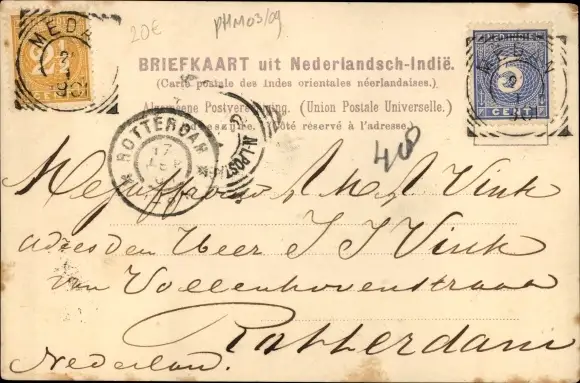 20€
PHM03/09
MEDAN
2
1901
2½
BRIEFKAART uit Nederlandsch-Indië.
(Carte postale des Indes orientales néerlandaises.)
Algemeene Postvereeniging. (Union Postale Universelle.)
Adreszijde. (Côté réservé à l'adresse.)
MEDAN
2
5
CENT
ROTTERDAM
17
N.I. POST
408
Mejuffrouw M. A. Vink
adres den Heer J J Vink
van Vollenhovenstraat
Rotterdam
Nederland.